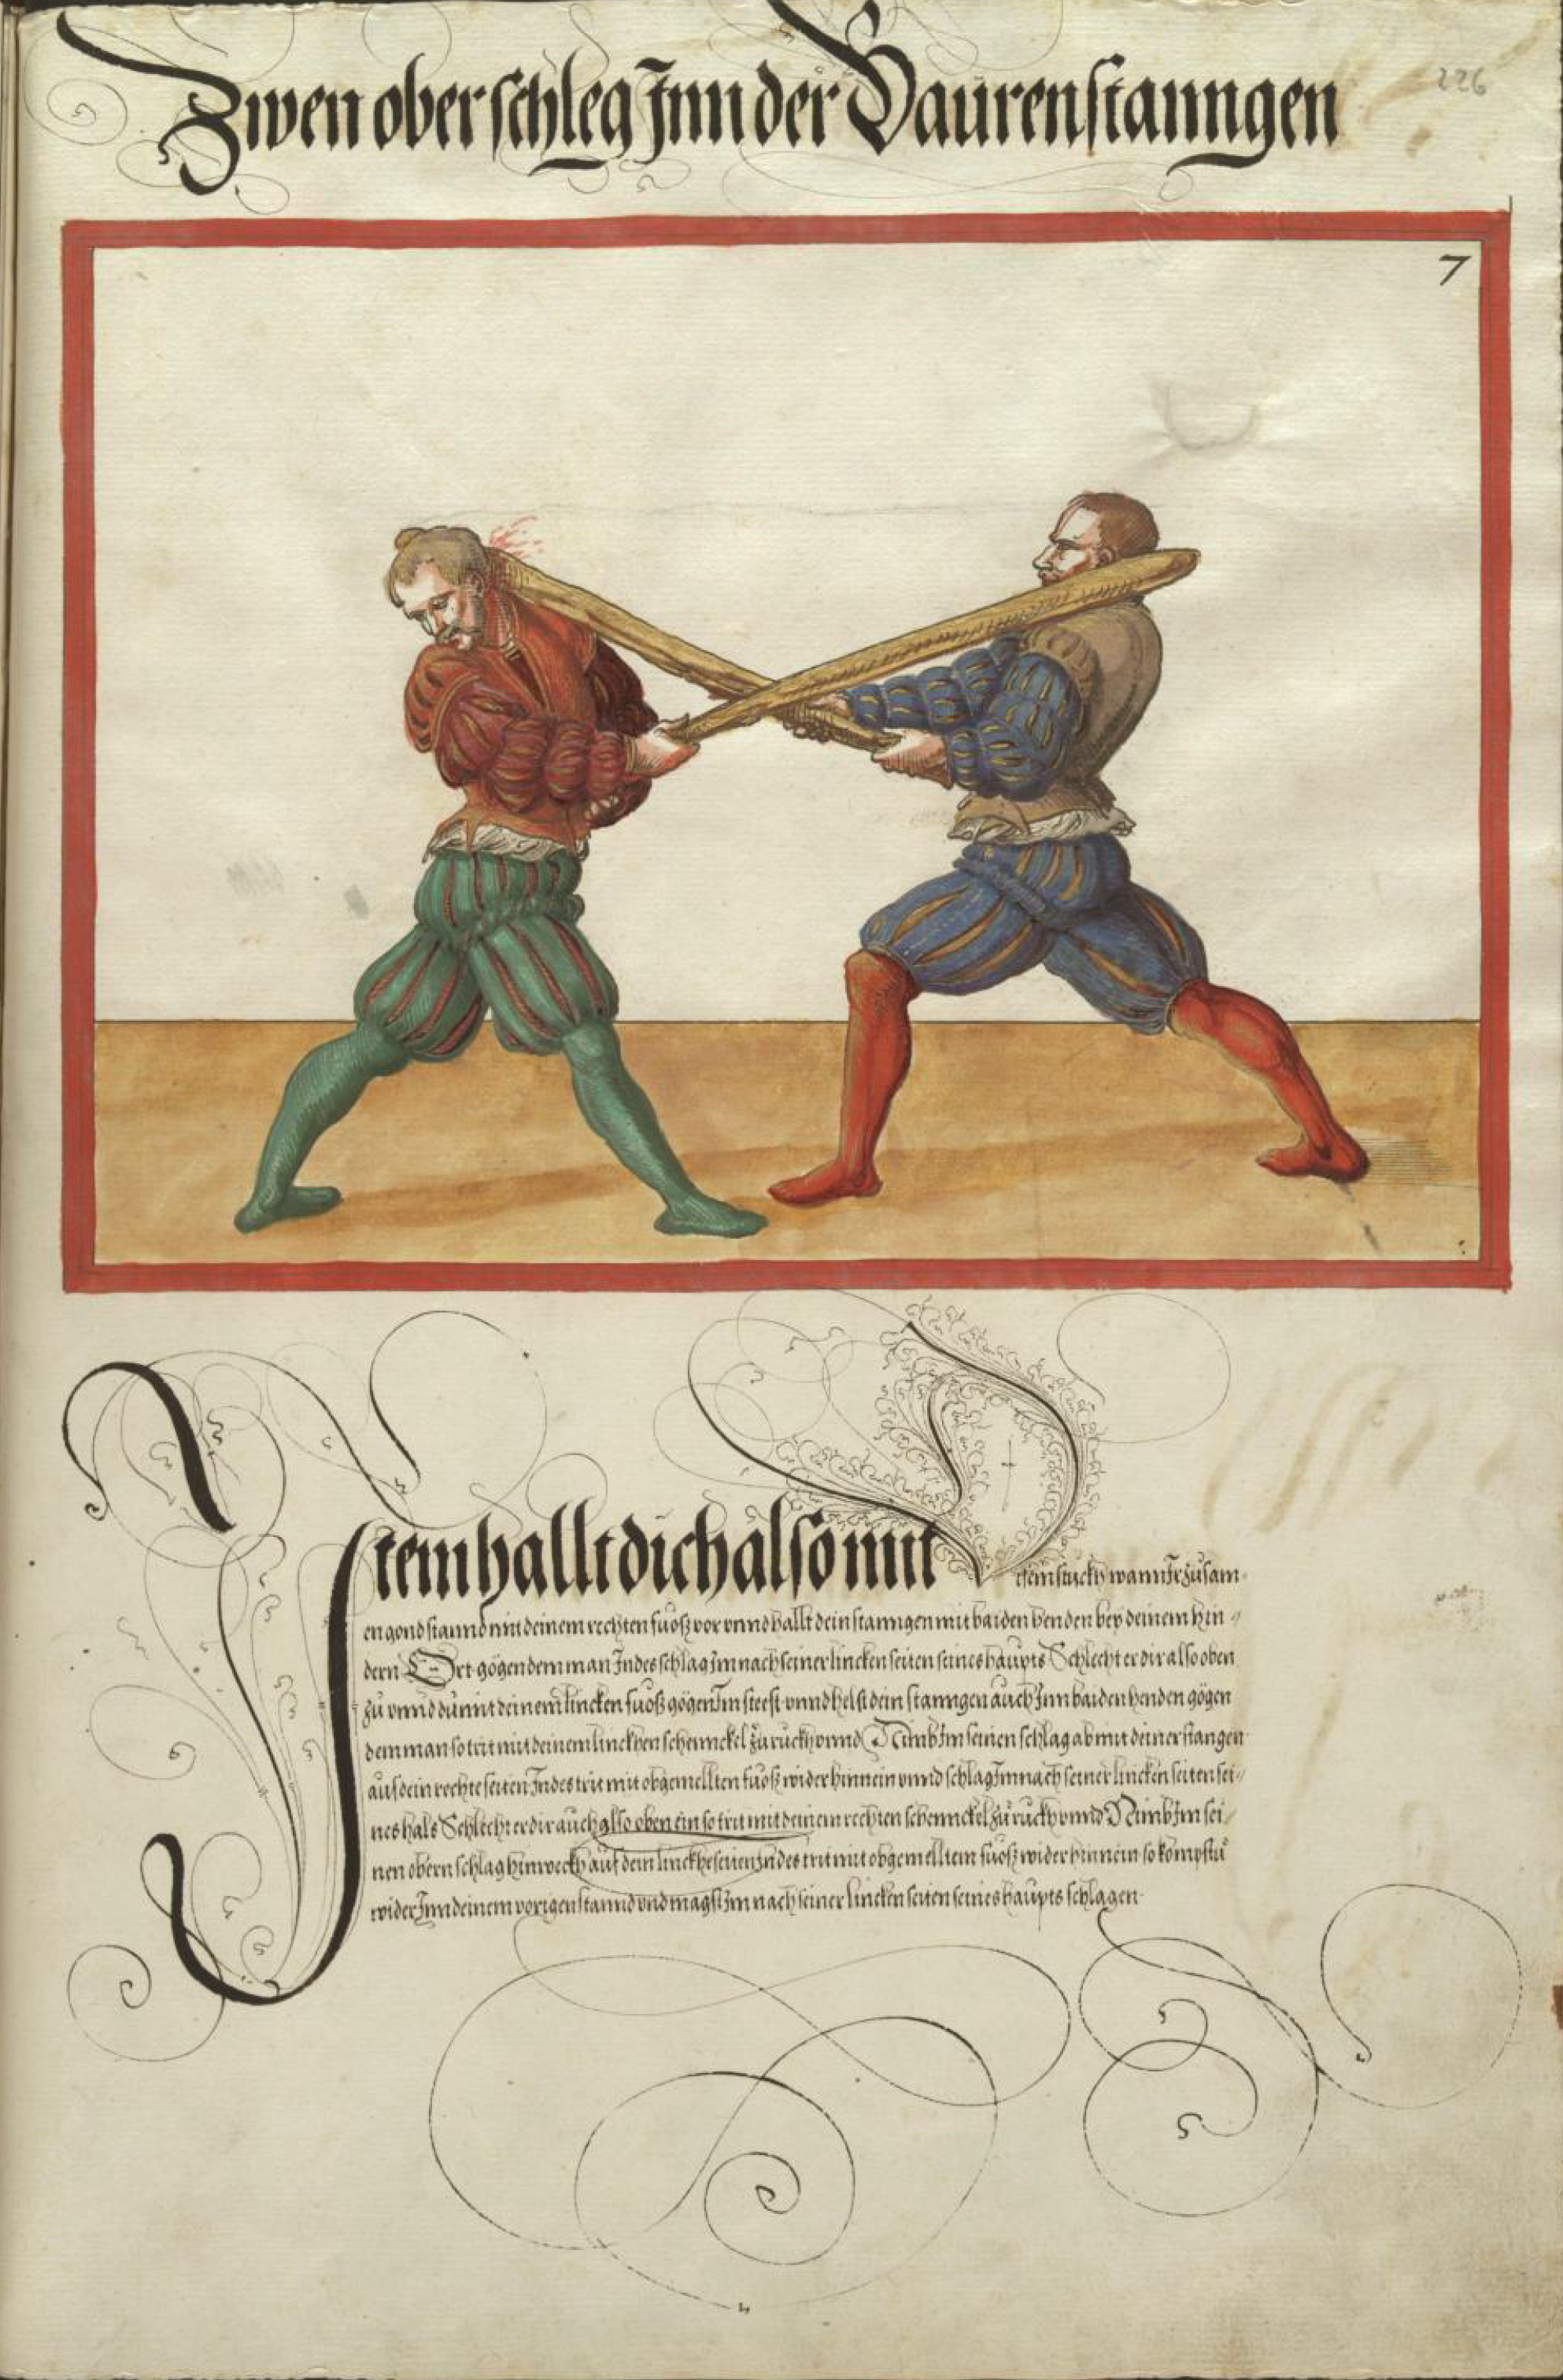 Zwen oberschleg Inn der Baurenstanngen
226
7
Item hallt dich also mit
disem stuckh wann Ir zusam¬
en gond stannd mit deinem rechten fuoß vor vnnd hallt dein stanngen mit baiden henden bey deinem hin¬
dern Ort gögen dem man Indes schlag Im nach seiner lincken seiten seines haupts Schlecht er dir also oben
zu vnnd du mit deinem lincken fuoß gögen Im steest vnnd helst dein stanngen auch Inn baiden henden gögen
dem man so trit mit deinem linckhen schennckel zuruckh vnnd Nimb Im seinen schlag ab mit deiner stangen
auf dein rechte seiten Indes trit mit obgemellten fuoß wider hinnein vnnd schlag Im nach seiner lincken seiten sei¬
nes hals Schlecht er dir auch also oben ein so trit mit deinem rechten schennckel zuruckh vnnd Nimb Im sei¬
nen obern schlag hinweckh auf dein linckhe seiten Indes trit mit obgemelltem fuoß wider hinnein so kompstu
wider Inn deinem vorigen stannd vnd magst Im nach seiner lincken seiten seines haupts schlagen